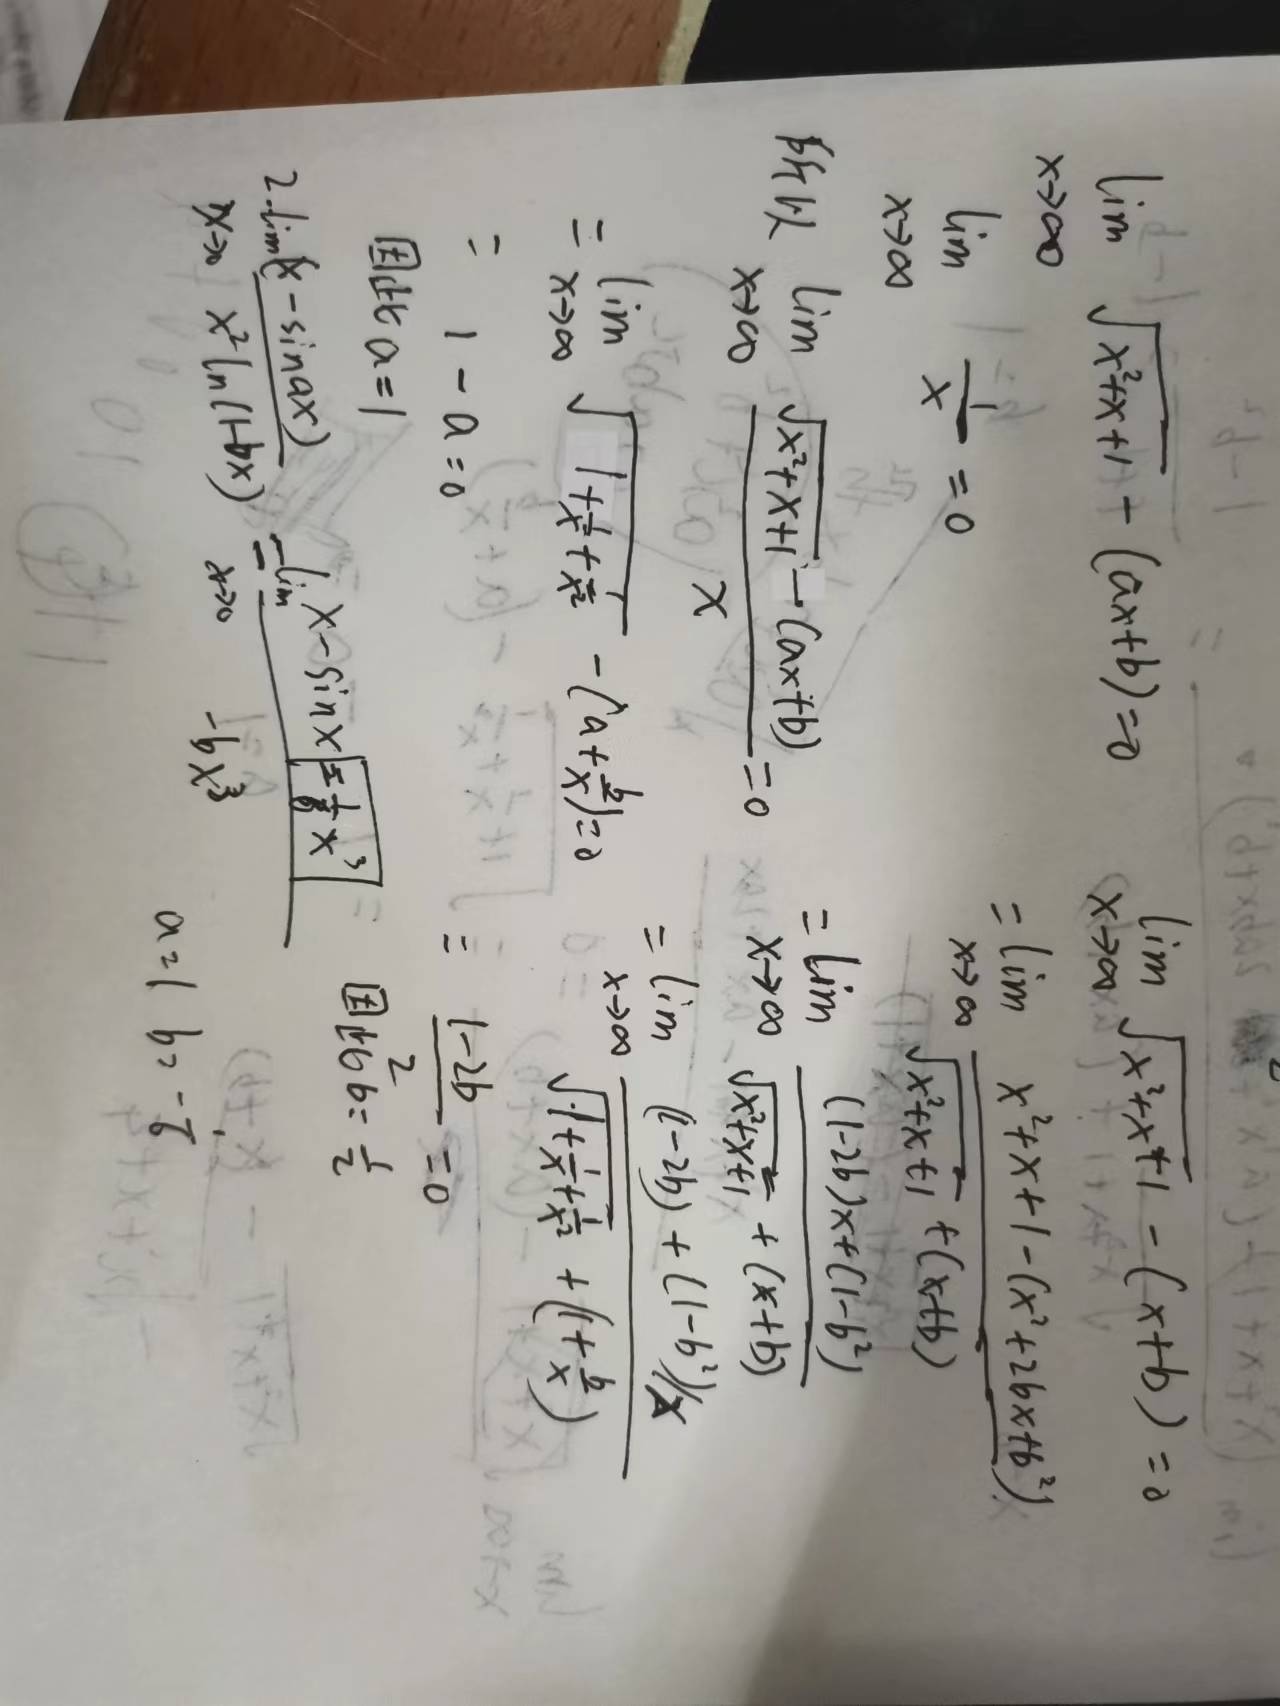 lim x→∞ √(x²+x+1) - (ax+b) = 0
lim x→∞ 1/x = 0
所以 lim x→∞ (√(x²+x+1) - (ax+b))/x = 0
= lim x→∞ √(1+1/x+1/x²) - (a+b/x) = 0
= 1 - a = 0
因此 a = 1
lim x→∞ √(x²+x+1) - (x+b) = 0
= lim x→∞ (x²+x+1-(x²+2bx+b²))/(√(x²+x+1)+(x+b))
= lim x→∞ ((1-2b)x+(1-b²))/(√(x²+x+1)+(x+b))
= lim x→∞ ((1-2b)+(1-b²)/x)/(√(1+1/x+1/x²)+(1+b/x))
= (1-2b)/2 = 0
因此 b = 1/2
2. lim x→0 (x-sinax)/(x²ln(1+bx)) = lim x→0 (x-sinx = 1/6 x³)/(-1/6 x³)
a=1 b=-1/6